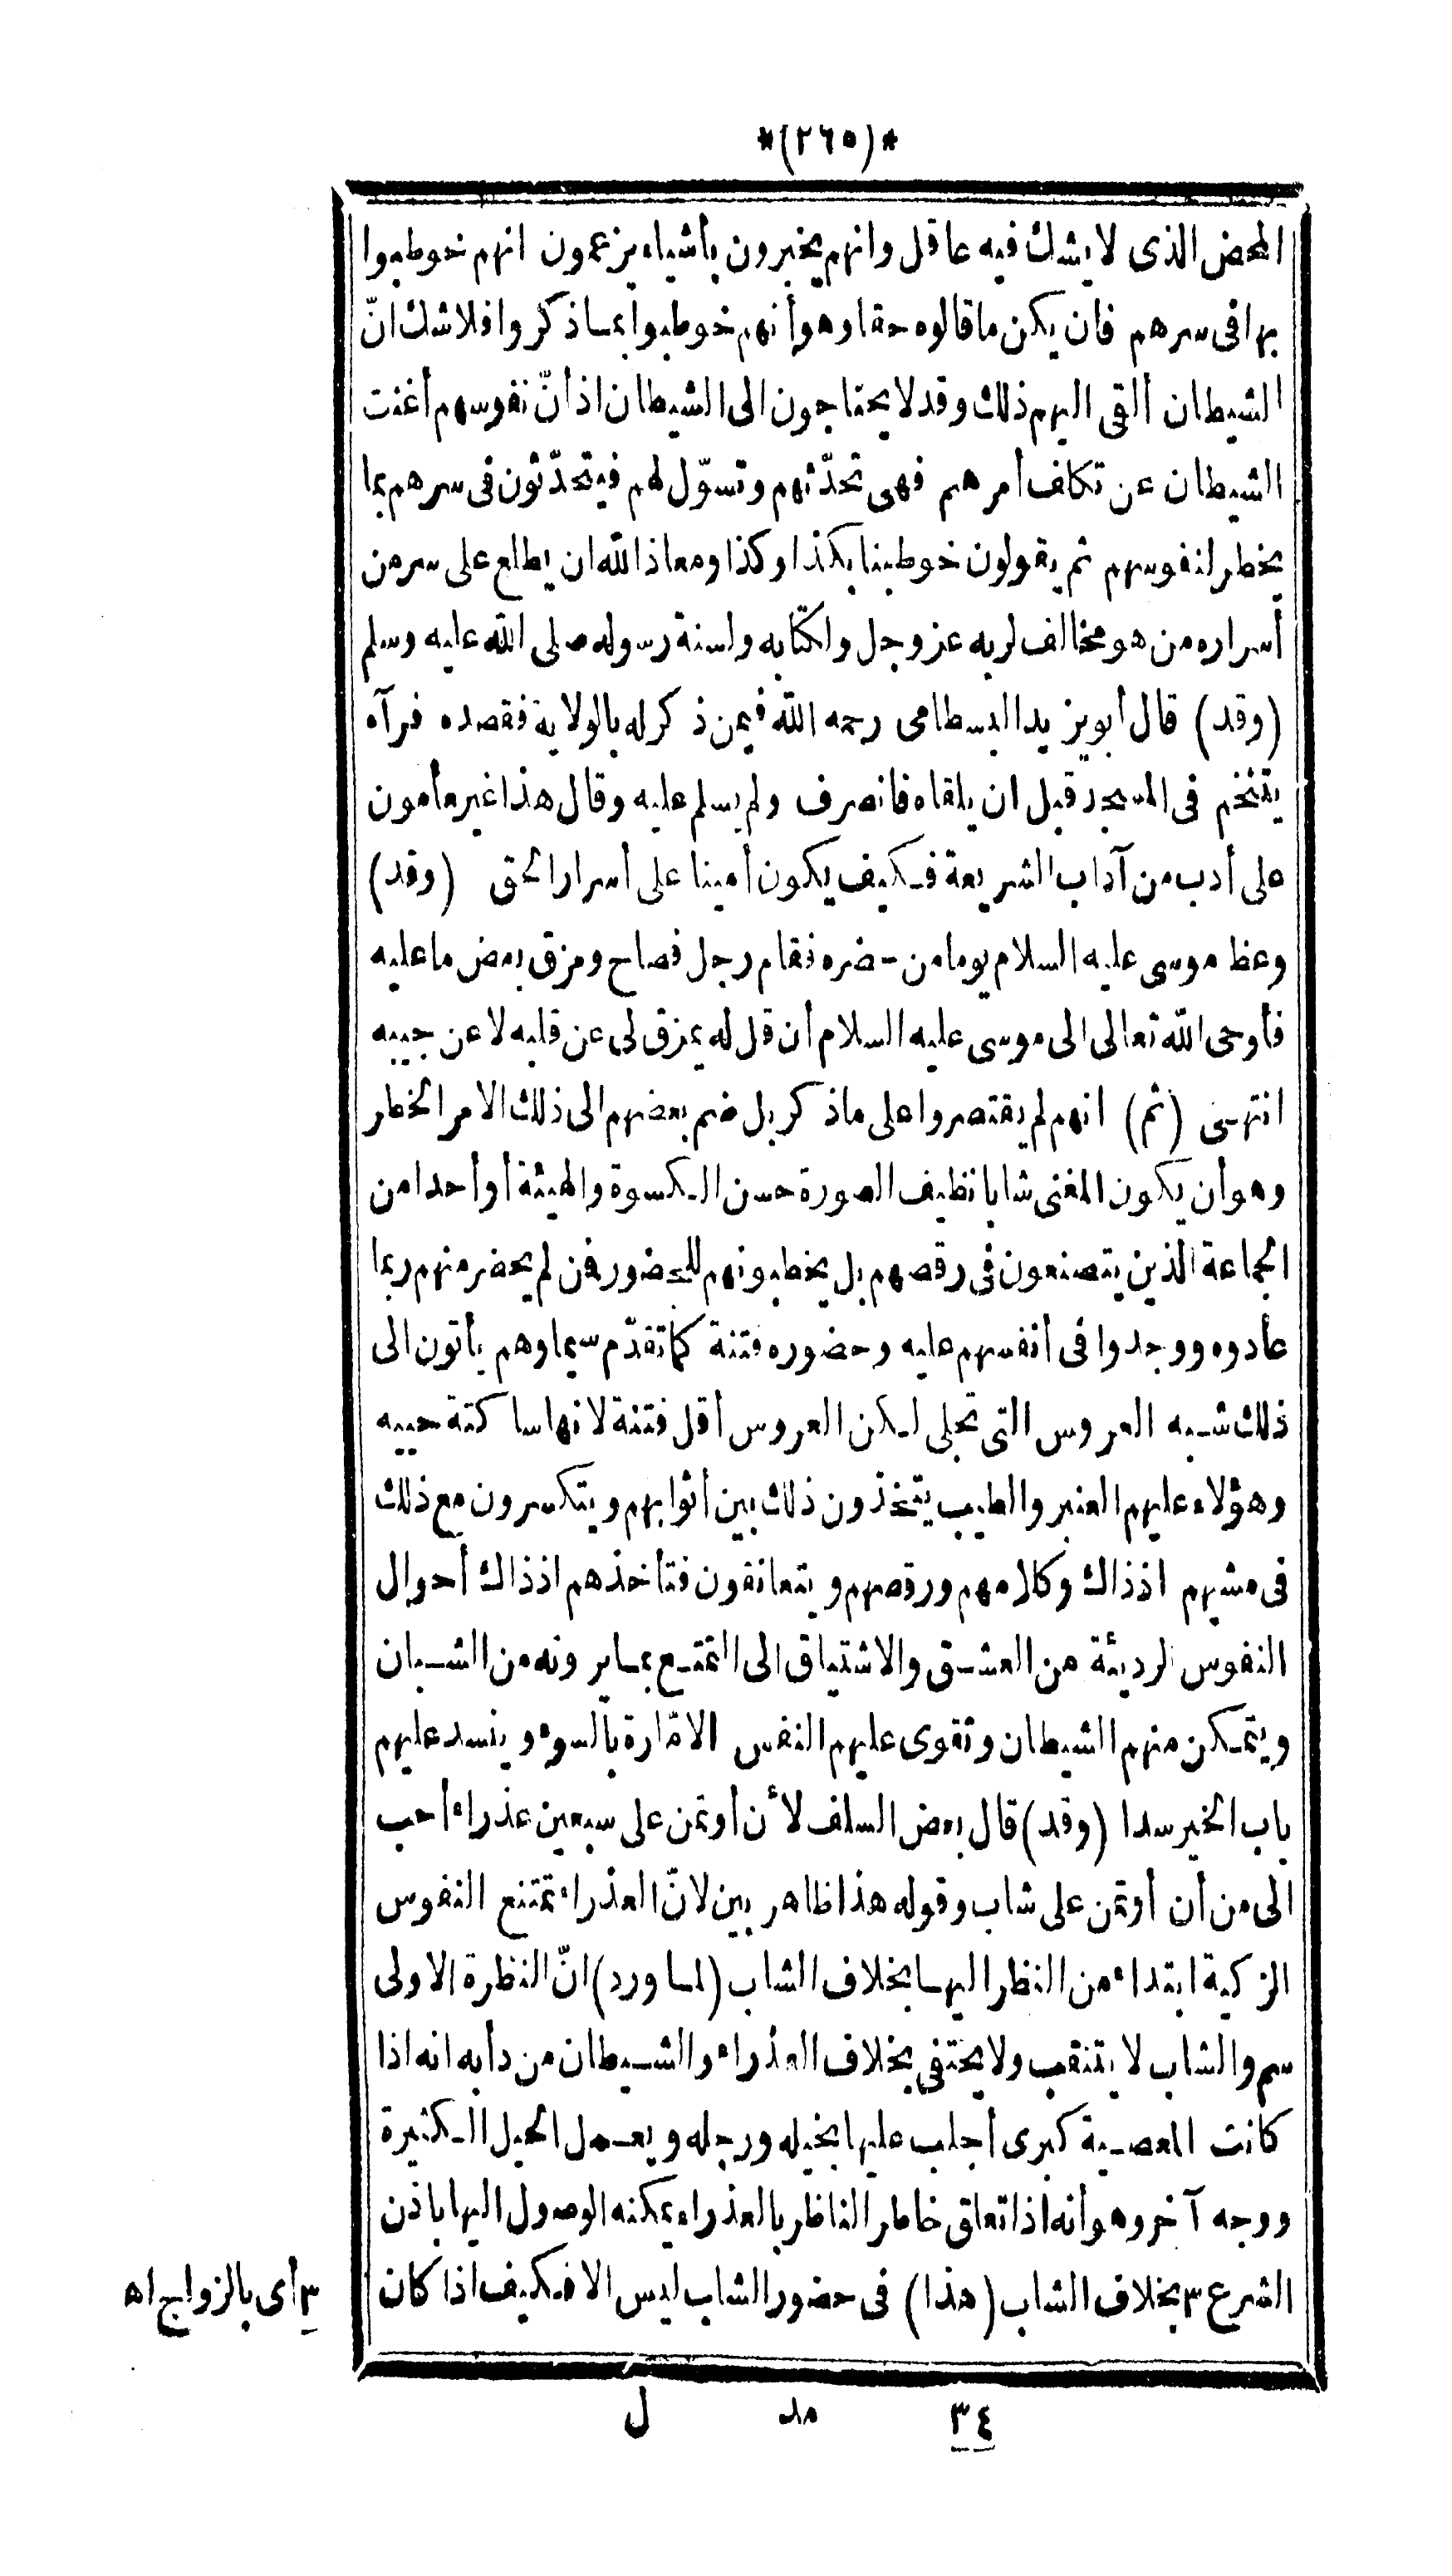 *(٢٦٥)*
المحض الذى لا يشك فيه عاقل وانهم يخبرون بأشياء يزعمون انهم خوطبوا
بها فى سرهم فان يكن ما قالوه حقا وهو أنهم خوطبوا بما ذكروا فلا شك انّ
الشيطان ألقى اليهم ذلك وقد لا يحتاجون الى الشيطان اذ أنّ نفوسهم أغنت
الشيطان عن تكلف أمرهم فهى تحدّثهم وتسوّل لهم فيتحدّثون فى سرهم بما
يخطر لنفوسهم ثم يقولون خوطبنا بكذا وكذا ومعاذ الله ان يطلع على سر من
أسراره من هو مخالف لربه عز وجل ولكتابه ولسنة رسوله صلى الله عليه وسلم
(وقد) قال أبو يزيد البسطامى رحمه الله فيمن ذكر له بالولاية فقصده فرآه
يتنخم فى المسجد قبل ان يلقاه فانصرف ولم يسلم عليه وقال هذا غير مأمون
على أدب من آداب الشريعة فكيف يكون أمينا على أسرار الحق (وقد)
وعظ موسى عليه السلام يوما من حضره فقام رجل فصاح ومزق بعض ما عليه
فأوحى الله تعالى الى موسى عليه السلام أن قل له يمزق لى عن قلبه لا عن جيبه
انتهى (ثم) انهم لم يقتصروا على ما ذكر بل ضم بعضهم الى ذلك الامر الخطر
وهو أن يكون المغنى شابا نظيف الصورة حسن الكسوة والهيئة أو أحدا من
الجماعة الذين يتصنعون فى رقصهم بل يخطبونهم للحضور فمن لم يحضر منهم ربما
عادوه ووجدوا فى أنفسهم عليه وحضوره فتنة كما تقدّم سيما وهم يأتون الى
ذلك شبه العروس التى تجلى لكن العروس أقل فتنة لانها ساكتة حيية
وهؤلاء عليهم العنبر والطيب يتخذون ذلك بين أثوابهم ويتكسرون مع ذلك
فى مشيهم اذ ذاك وكلامهم ورقصهم ويتعانقون فتأخذهم اذ ذاك أحوال
النفوس الرديئة من العشق والاشتياق الى التمتع بما يرونه من الشبان
ويتمكن منهم الشيطان وتقوى عليهم النفس الامّارة بالسوء وينسد عليهم
باب الخير سدا (وقد) قال بعض السلف لأن أوتمن على سبعين عذراء أحب
الى من أن أوتمن على شاب وقوله هذا ظاهر بين لانّ العذراء تمتنع النفوس
الزكية ابتداء من النظر اليها بخلاف الشاب (لما ورد) انّ النظرة الاولى
سم والشاب لا يتنقب ولا يختفى بخلاف العذراء والشيطان من دأبه انه اذا
كانت المعصية كبرى أجلب عليها بخيله ورجله ويعمل الحيل الكثيرة
ووجه آخر وهو أنه اذا تعلق خاطر الناظر بالعذراء يمكنه الوصول اليها باذن
الشرع ٣ بخلاف الشاب (هذا) فى حضور الشاب ليس الا فكيف اذا كان
٣ أى بالزواج اه
٣٤ مد ل